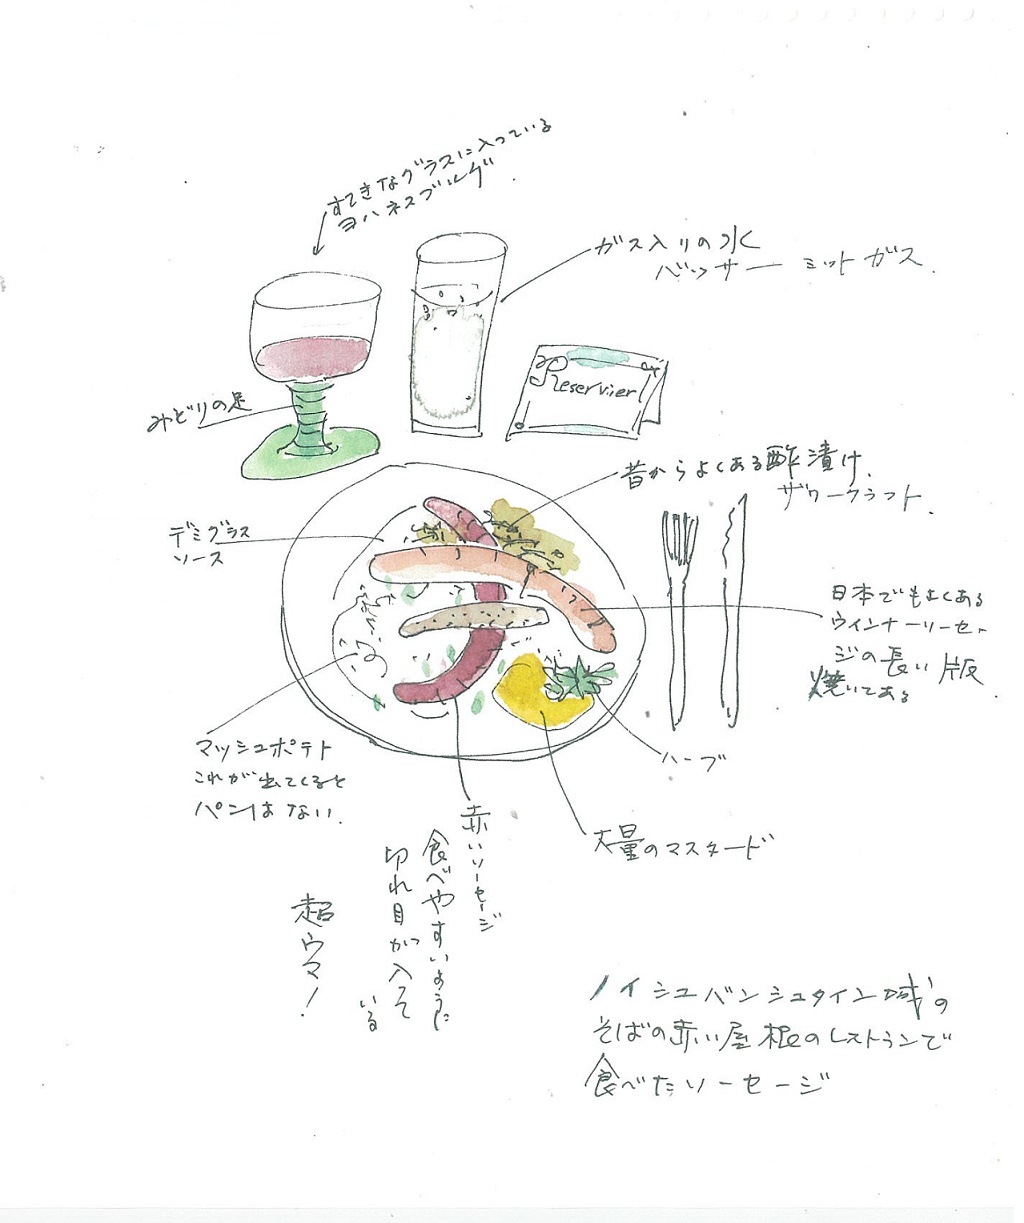 すてきなグラスに入っている
ヨハネスブルグ
ガス入りの水
バッサー ミットガス.
Reserviert
みどりの足
昔からよくある酢漬け.
ザワークラフト.
デミグラス
ソース
日本でもよくある
ウィンナーソーセー
ジの長い版
焼いてある
マッシュポテト
これが出てくると
パンはない.
ハーブ
大量のマスタード
赤いソーセージ
食べやすいように
切れ目が入って
いる
超ウマ!
ノイシュバンシュタイン城の
そばの赤い屋根のレストランで
食べたソーセージ